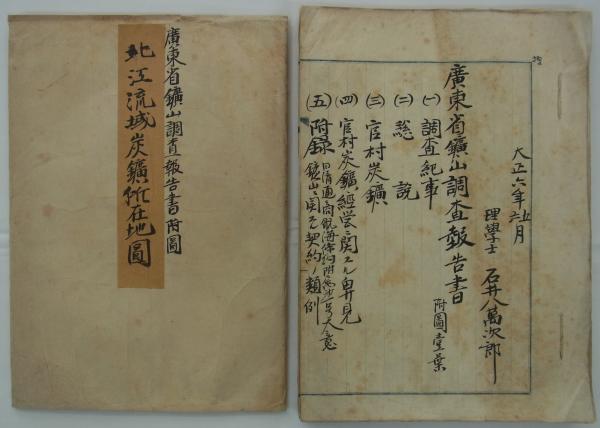 廣東省鑛山調査報告書附圖
北江流域炭鑛所在地圖
大正六年五月
理學士 石井八萬次郎
廣東省鑛山調査報告書
附圖壹葉
(一) 調査紀事
(二) 総說
(三) 官村炭鑛
(四) 官村炭鑛経営ニ関スル卑見
(五) 附録
日清通商航海條約附属
大意
鑛山ニ関スル契約ノ類例